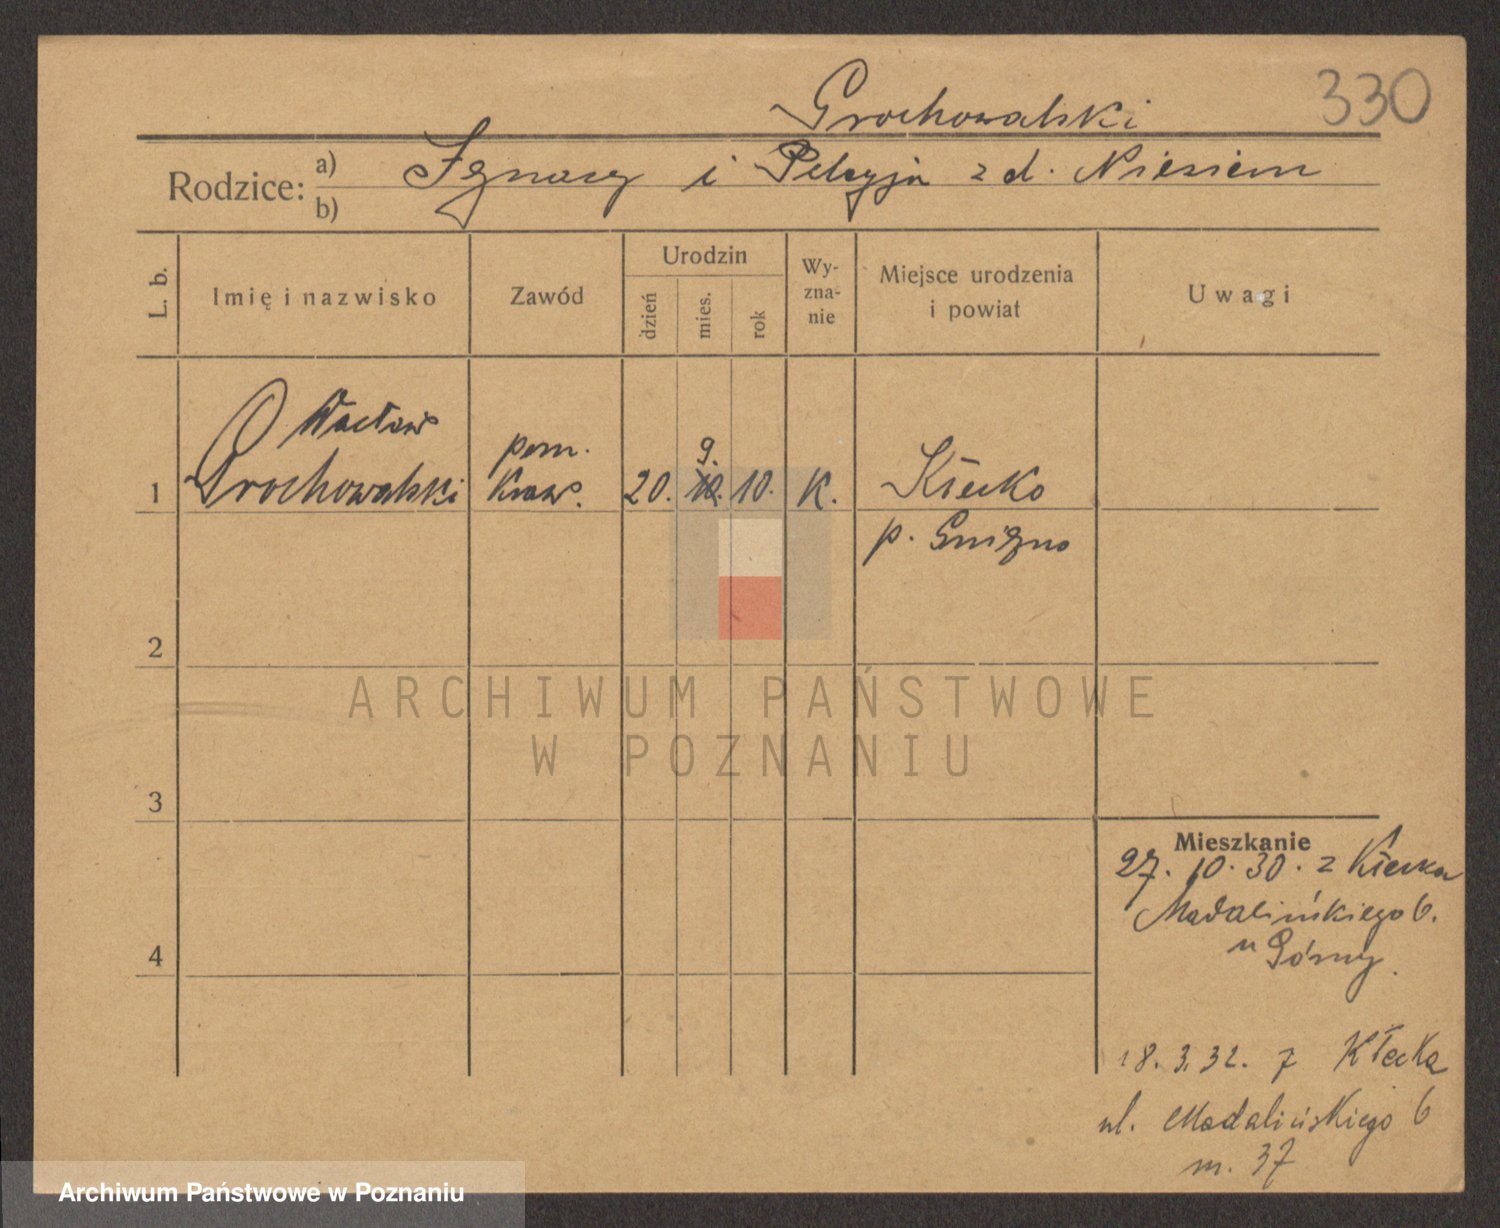 330
Grochowalski
Rodzice: a) Ignacy i Pelagja z d. Niesiem
b)
L. b.
Imię i nazwisko
Zawód
Urodzin
dzień
mies.
rok
Wy-
zna-
nie
Miejsce urodzenia
i powiat
Uwagi
Wacław
Grochowalski
pom.
kraw.
1
20. 10. 9. 10.
K.
Kłecko
p. Gniezno
2
3
4
Mieszkanie
27. 10. 30. z Kłecka
Madalińskiego 6.
u Górny
18. 3. 32. z Kłecka
ul. Madalińskiego 6
m. 37
ARCHIWUM PAŃSTWOWE
W POZNANIU
Archiwum Państwowe w Poznaniu